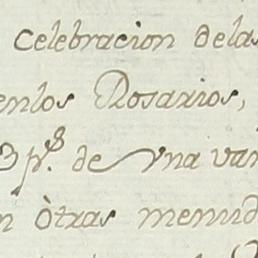 Celebracion delas
enlos Rosarios,
3 p.s de vna var
n òtras menud